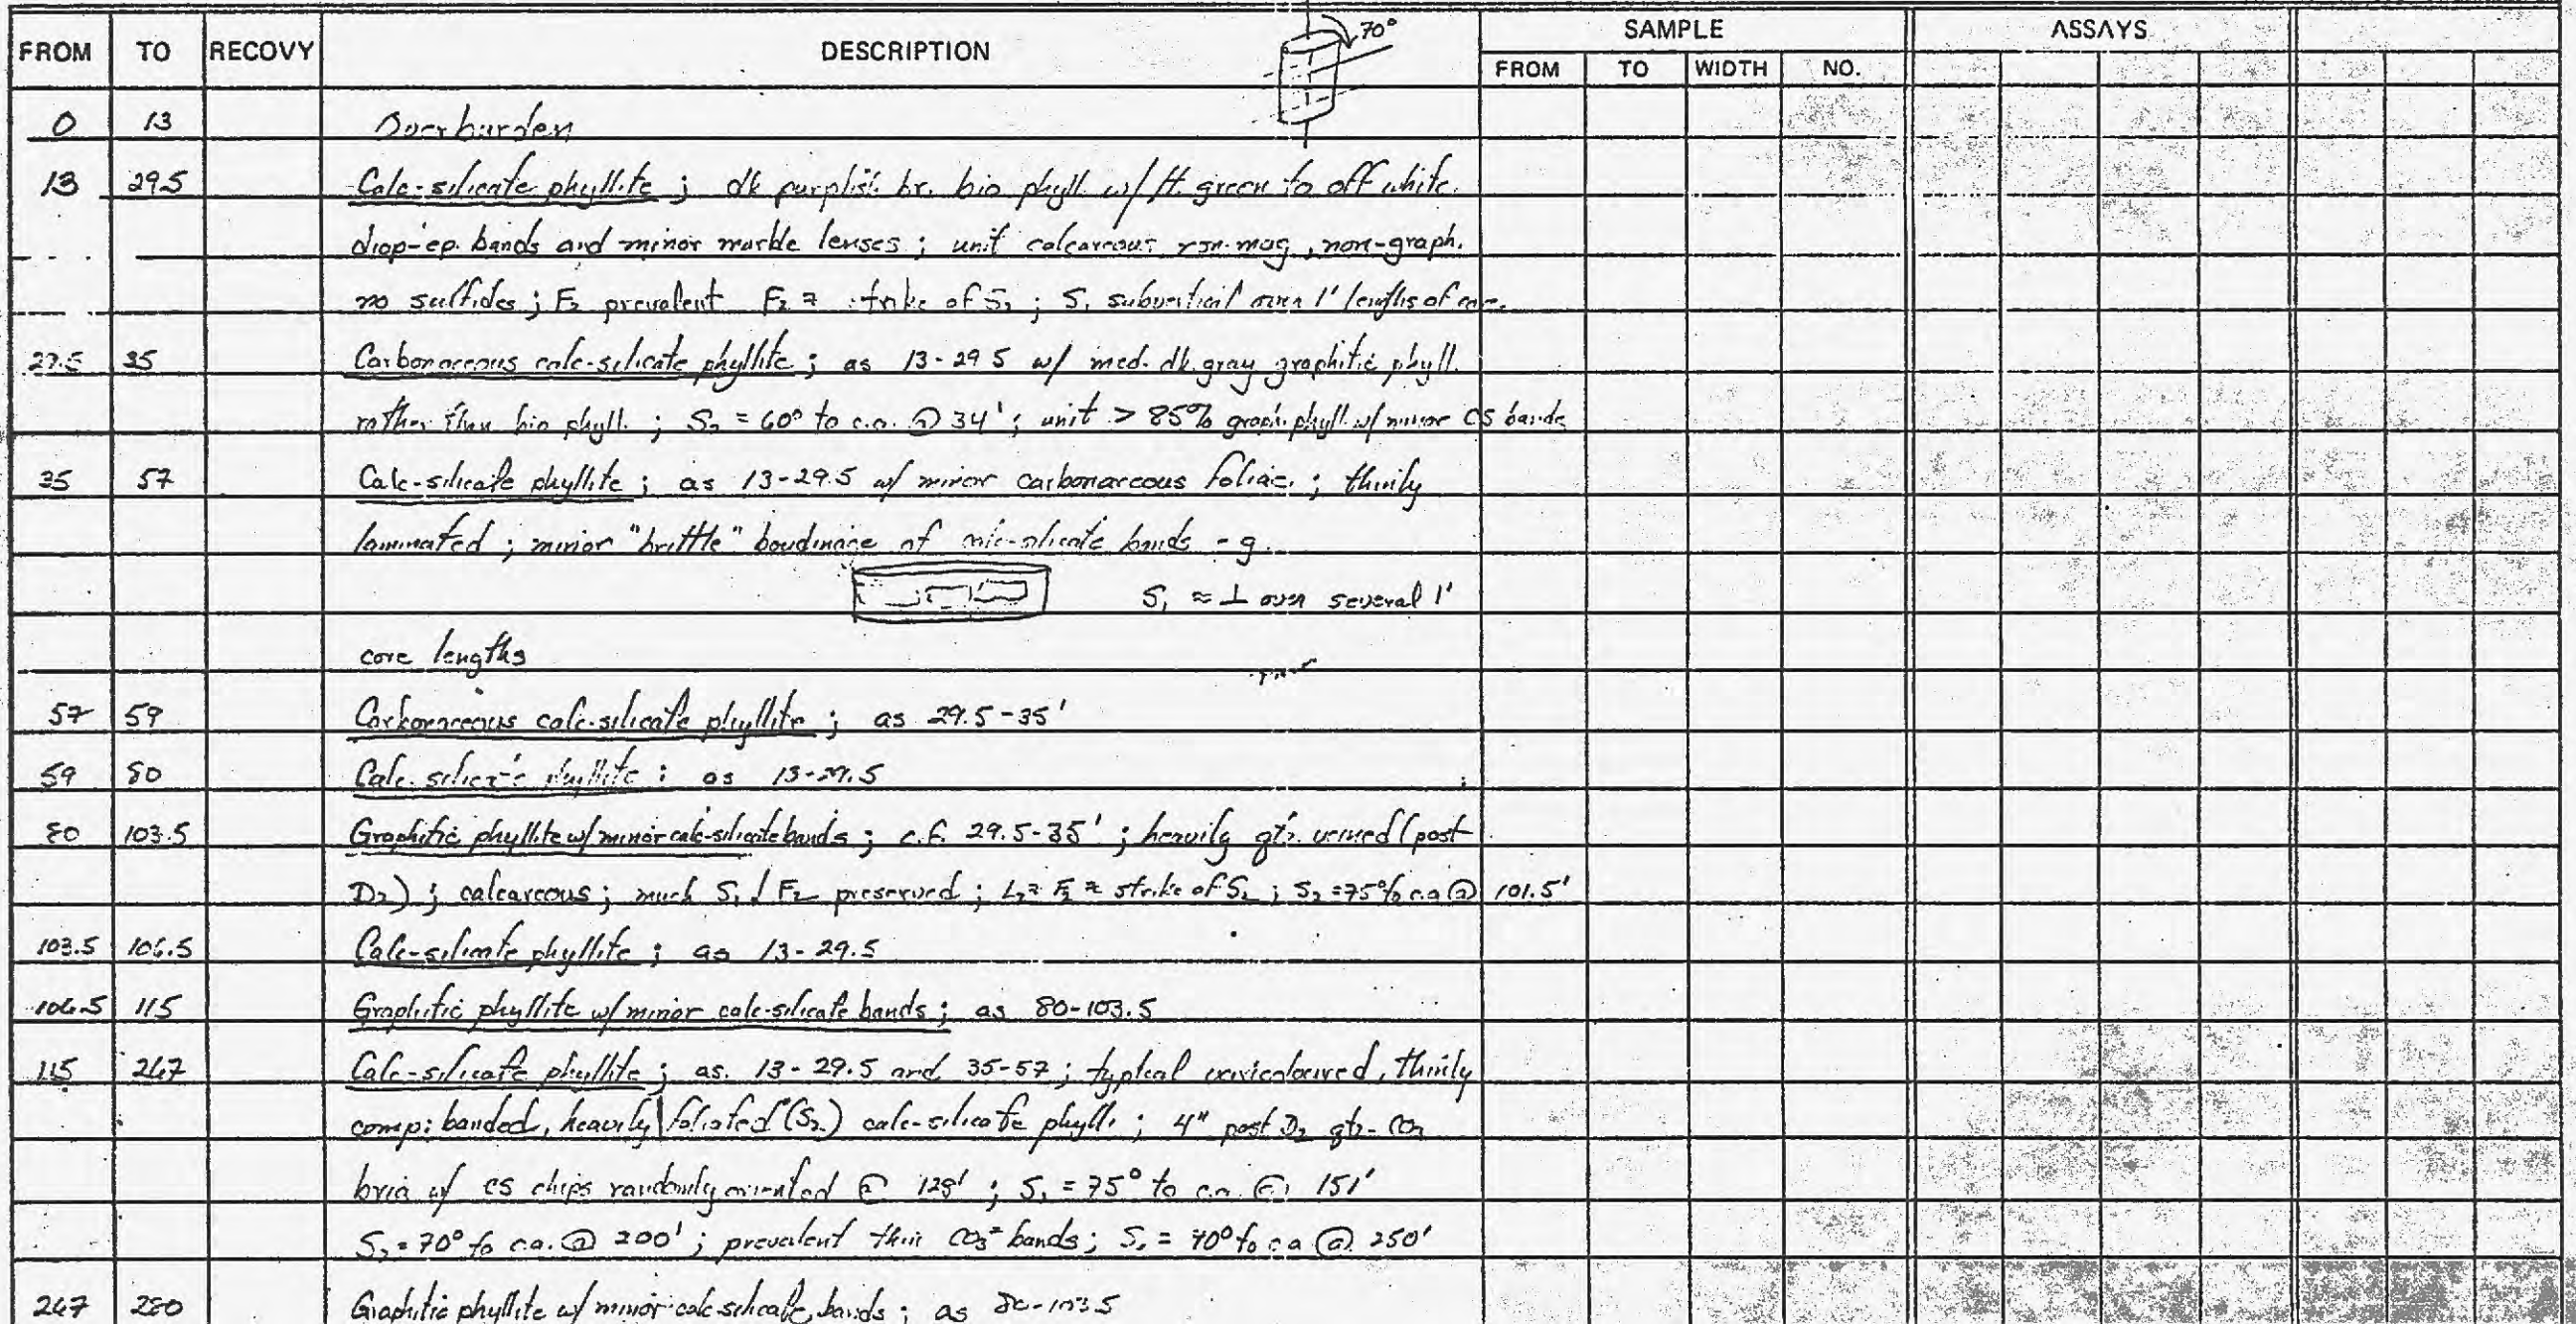 70°
FROM TO RECOVY DESCRIPTION SAMPLE ASSAYS
FROM TO WIDTH NO.
0 13 Overburden
13 29.5 Calc-silicate phyllite; dk purplish br. bio phyll. w/ lt. green to off white
diop-ep. bands and minor marble lenses; unit calcareous, non-mag, non-graph.
no sulfides; F2 prevalent F2 strike of S2; S1 subvertical over 1' lengths of core.
29.5 35 Carbonaceous calc-silicate phyllite; as 13-29.5 w/ med. dk. gray graphitic phyll.
rather than bio phyll.; S2 = 60° to c.a. @ 34'; unit > 85% graph. phyll. w/ minor CS bands
35 57 Calc-silicate phyllite; as 13-29.5 w/ minor carbonaceous foliae.; thinly
laminated; minor "brittle" boudinage of calc-silicate bands - g.
S1 ≈ ⊥ over several 1'
core lengths
57 59 Carbonaceous calc-silicate phyllite; as 29.5-35'
59 80 Calc-silicate phyllite: as 13-29.5
80 103.5 Graphitic phyllite w/ minor calc-silicate bands; c.f. 29.5-35'; heavily qtz. veined (post
D2); calcareous; much S1 / F2 preserved; L2 ≈ F2 ≈ strike of S2; S2 = 75° to c.a @ 101.5'
103.5 106.5 Calc-silicate phyllite; as 13-29.5
106.5 115 Graphitic phyllite w/ minor calc-silicate bands; as 80-103.5
115 267 Calc-silicate phyllite; as 13-29.5 and 35-57; typical varicoloured, thinly
comp. banded, heavily foliated (S2) calc-silicate phyll.; 4" post D2 qtz-CO3
bxia w/ CS chips randomly oriented @ 128'; S1 = 75° to c.a. @ 151'
S2 = 70° to c.a. @ 200'; prevalent thin CO3= bands; S1 = 70° to c.a @ 250'
267 280 Graphitic phyllite w/ minor calc-silicate bands; as 80-103.5